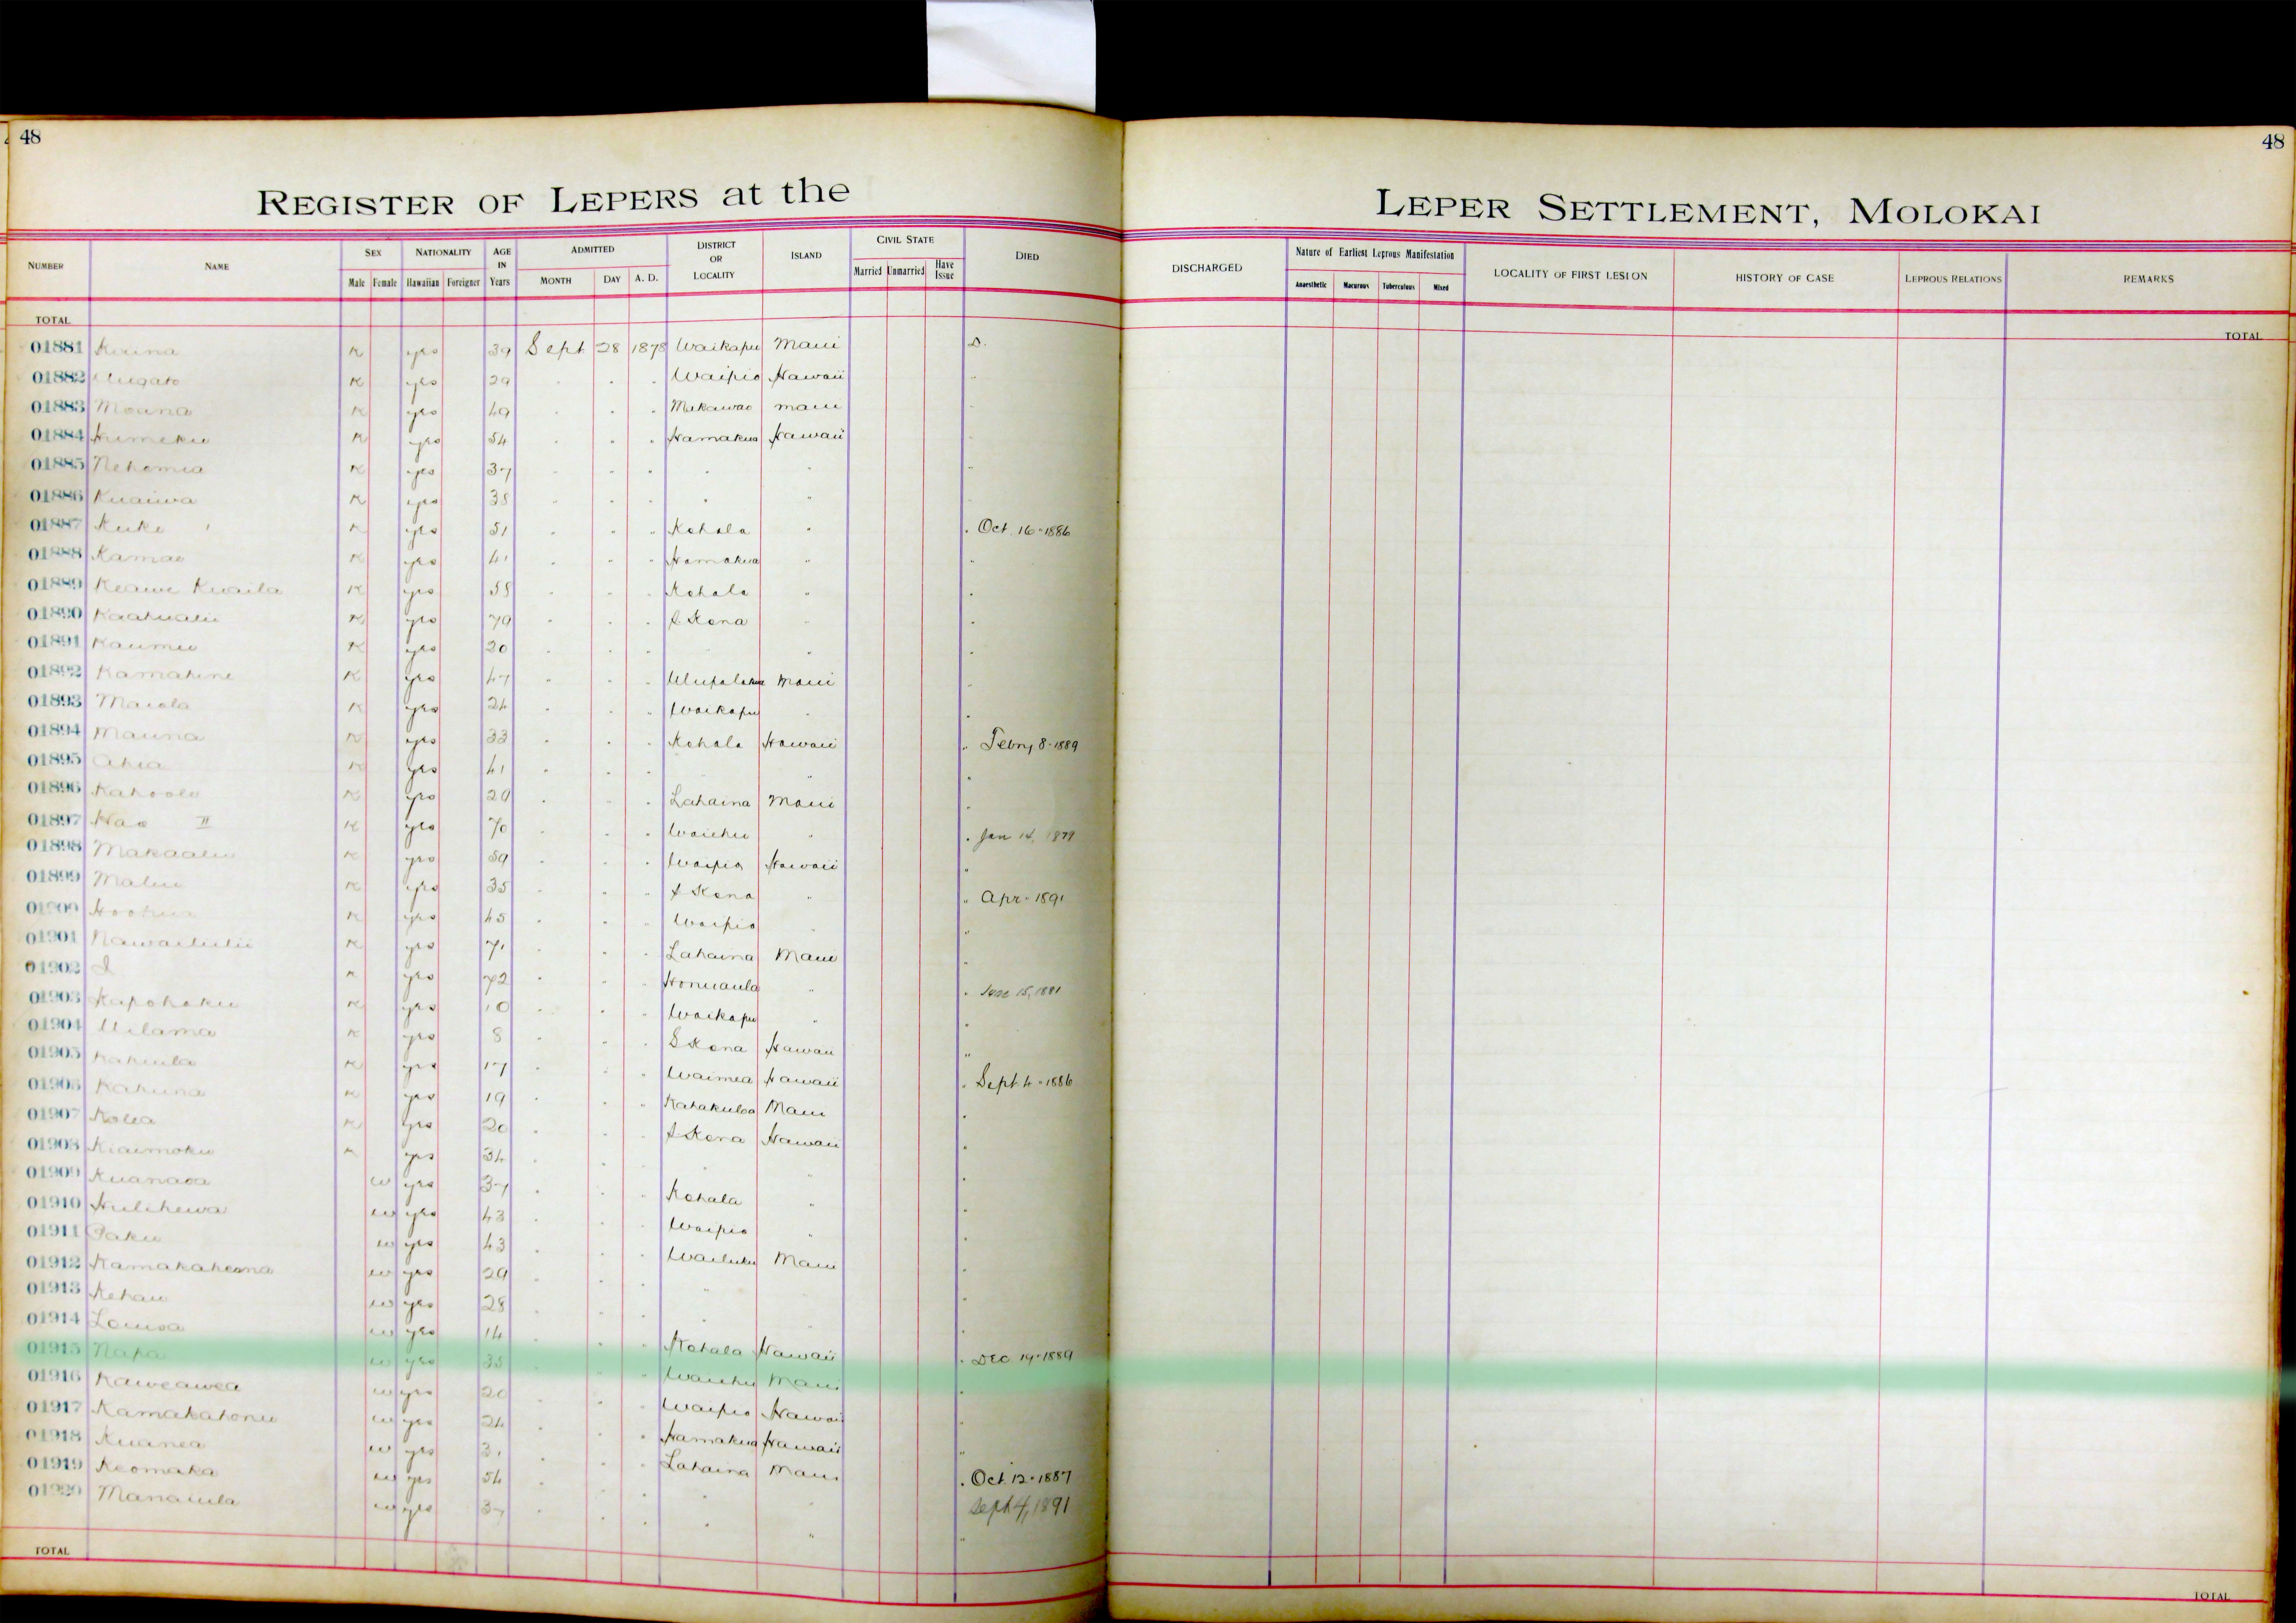 48
48
REGISTER OF LEPERS at the LEPER SETTLEMENT, MOLOKAI
NUMBER NAME SEX Male Female NATIONALITY Hawaiian Foreigner AGE IN Years ADMITTED MONTH DAY A. D. DISTRICT OR LOCALITY ISLAND CIVIL STATE Married Unmarried Have Issue DIED DISCHARGED Nature of Earliest Leprous Manifestation Anaesthetic Macurous Tuberculous Mixed LOCALITY OF FIRST LESION HISTORY OF CASE LEPROUS RELATIONS REMARKS
TOTAL TOTAL
01881 K yes 39 Sept 28 1878 Waikapu Maui D.
01882 K yes 29 " " " Waipio Hawaii "
01883 Moana K yes 49 " " " Makawao Maui "
01884 Humeku K yes 54 " " " Hamakua Hawaii "
01885 Nehemia K yes 37 " " " " " "
01886 Kuaiwa K yes 38 " " " " " "
01887 Kuke K yes 51 " " " Kohala " " Oct. 16-1886
01888 Kamao K yes 41 " " " Hamakua " "
01889 Keawe Kuaila K yes 58 " " " Kohala " "
01890 Kaahualii K yes 79 " " " Kona " "
01891 Kaumu K yes 20 " " " " " "
01892 Kamahine K yes 47 " " " Ulupalakua Maui "
01893 Maiola K yes 24 " " " Waikapu " "
01894 Mauna K yes 33 " " " Kohala Hawaii " Febry 8-1889
01895 Ahia K yes 41 " " " " " "
01896 Kahoole K yes 29 " " " Lahaina Maui "
01897 Hao II K yes 70 " " " Waiehu " " Jan 14, 1879
01898 Makaalu K yes 59 " " " Waipio Hawaii "
01899 Malu K yes 35 " " " Kona " " Apr. 1891
01900 K yes 45 " " " Waipio " "
01901 Nawailiilii K yes 71 " " " Lahaina Maui "
01902 I K yes 72 " " " Honuaula " " June 15, 1881
01903 Kapohaku K yes 10 " " " Waikapu " "
01904 Wilama K yes 8 " " " S Kona Hawaii "
01905 K yes 17 " " " Waimea Hawaii " Sept. 4-1886
01906 Kahuna K yes 19 " " " Kahakuloa Maui "
01907 Kolea K yes 20 " " " Kona Hawaii "
01908 Kiaimoku K yes 34 " " " " " "
01909 Kuanaoa w yes 37 " " " Kohala " "
01910 Hulihewa w yes 43 " " " Waipio " "
01911 Paku w yes 43 " " " Wailuku Maui "
01912 w yes 29 " " " " " "
01913 Kehau w yes 28 " " " " " "
01914 Louisa w yes 14 " " " Kohala Hawaii " Dec. 19-1889
01915 Napa w yes 35 " " " Waiehu Maui "
01916 Kaweawea w yes 20 " " " Waipio Hawaii "
01917 Kamakahonu w yes 24 " " " Hamakua Hawaii "
01918 Kuanea w yes 31 " " " Lahaina Maui " Oct 12-1887
01919 Keomaka w yes 54 " " " " " Sept 4, 1891
01920 Manaiula w yes 37 " " " " " "
TOTAL TOTAL